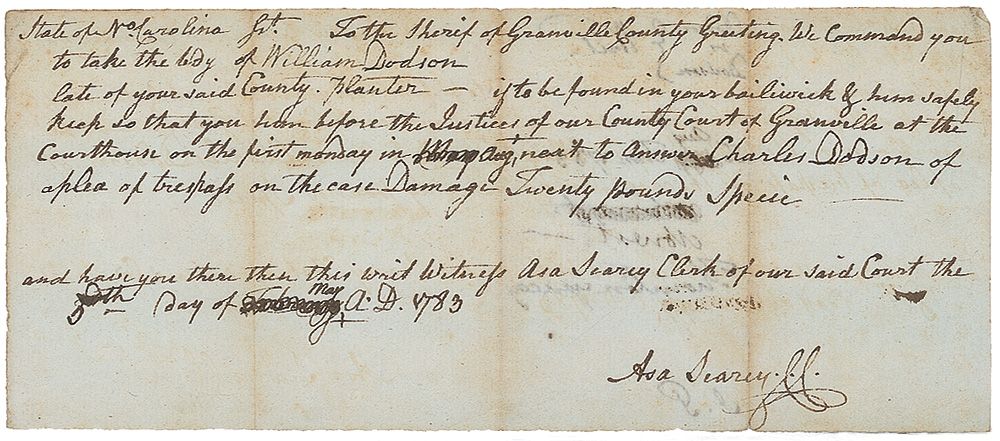 State of No. Carolina Sct. To the Sherif of Granville County Greeting. We Command you
to take the body of William Dodson
late of your said County. Planter — if to be found in your bailiwick & him safely
keep so that you him before the Justices of our County Court of Granville at the
Courthouse on the first monday in Augt. next to Answer Charles Dodson of
a plea of trespass on the case Damage Twenty pounds Specie
and have you there then this writ Witness Asa Searcy Clerk of our said Court the
5th day of May A. D. 1783
Asa Searcy. C.C.